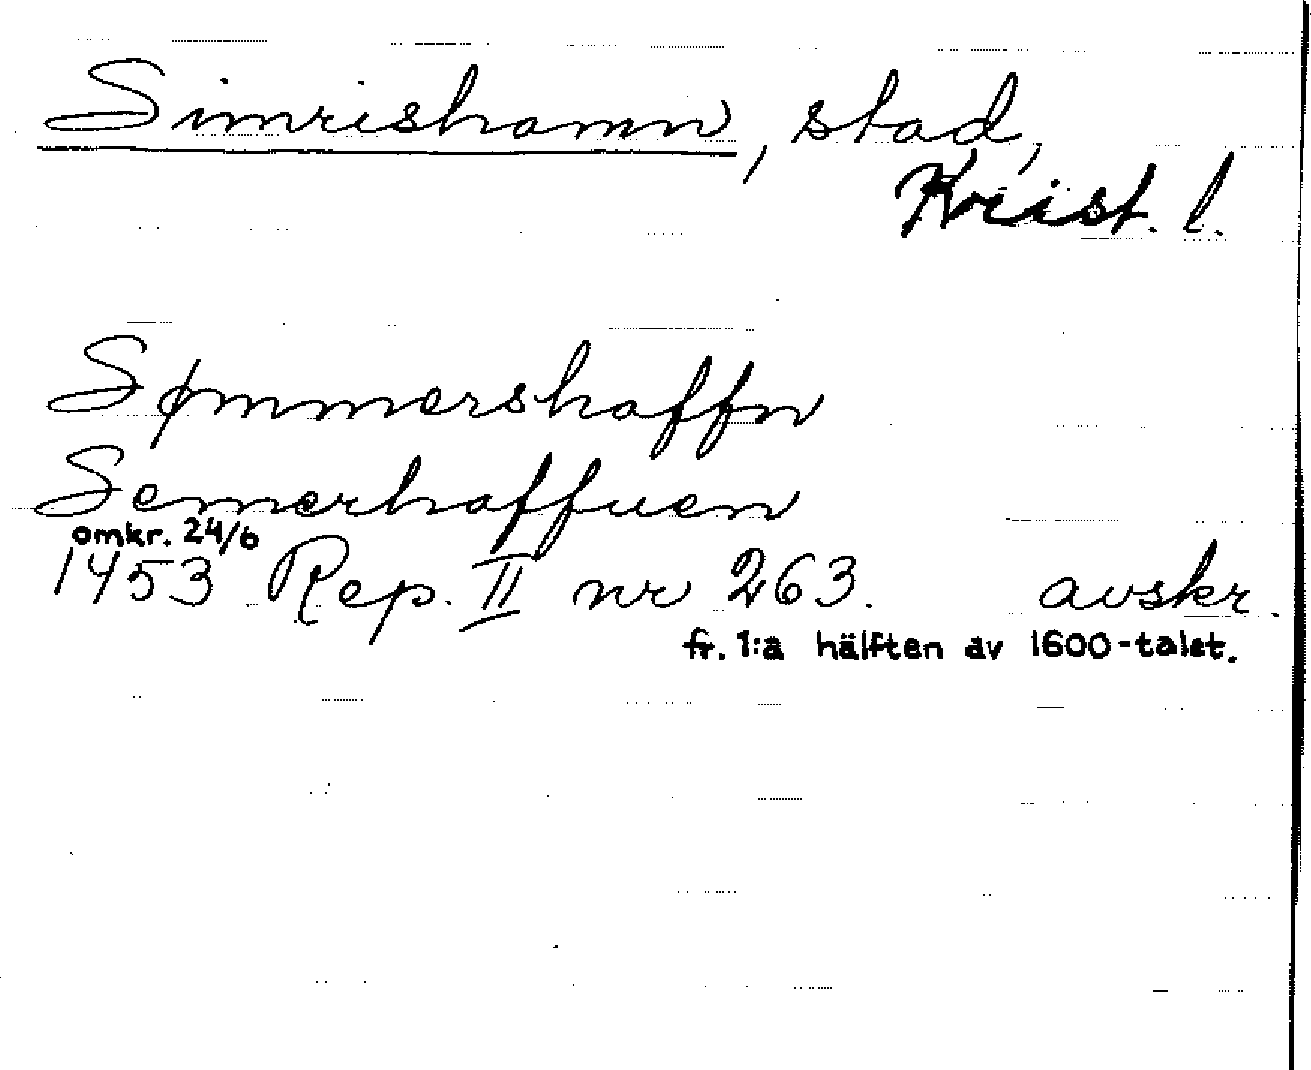 Simrishamn, stad,
Krist. l.
Sømmershaffn
Semerhaffuen
omkr. 24/6
1453 Rep. II nr 263. avskr.
fr. 1:a hälften av 1600-talet.